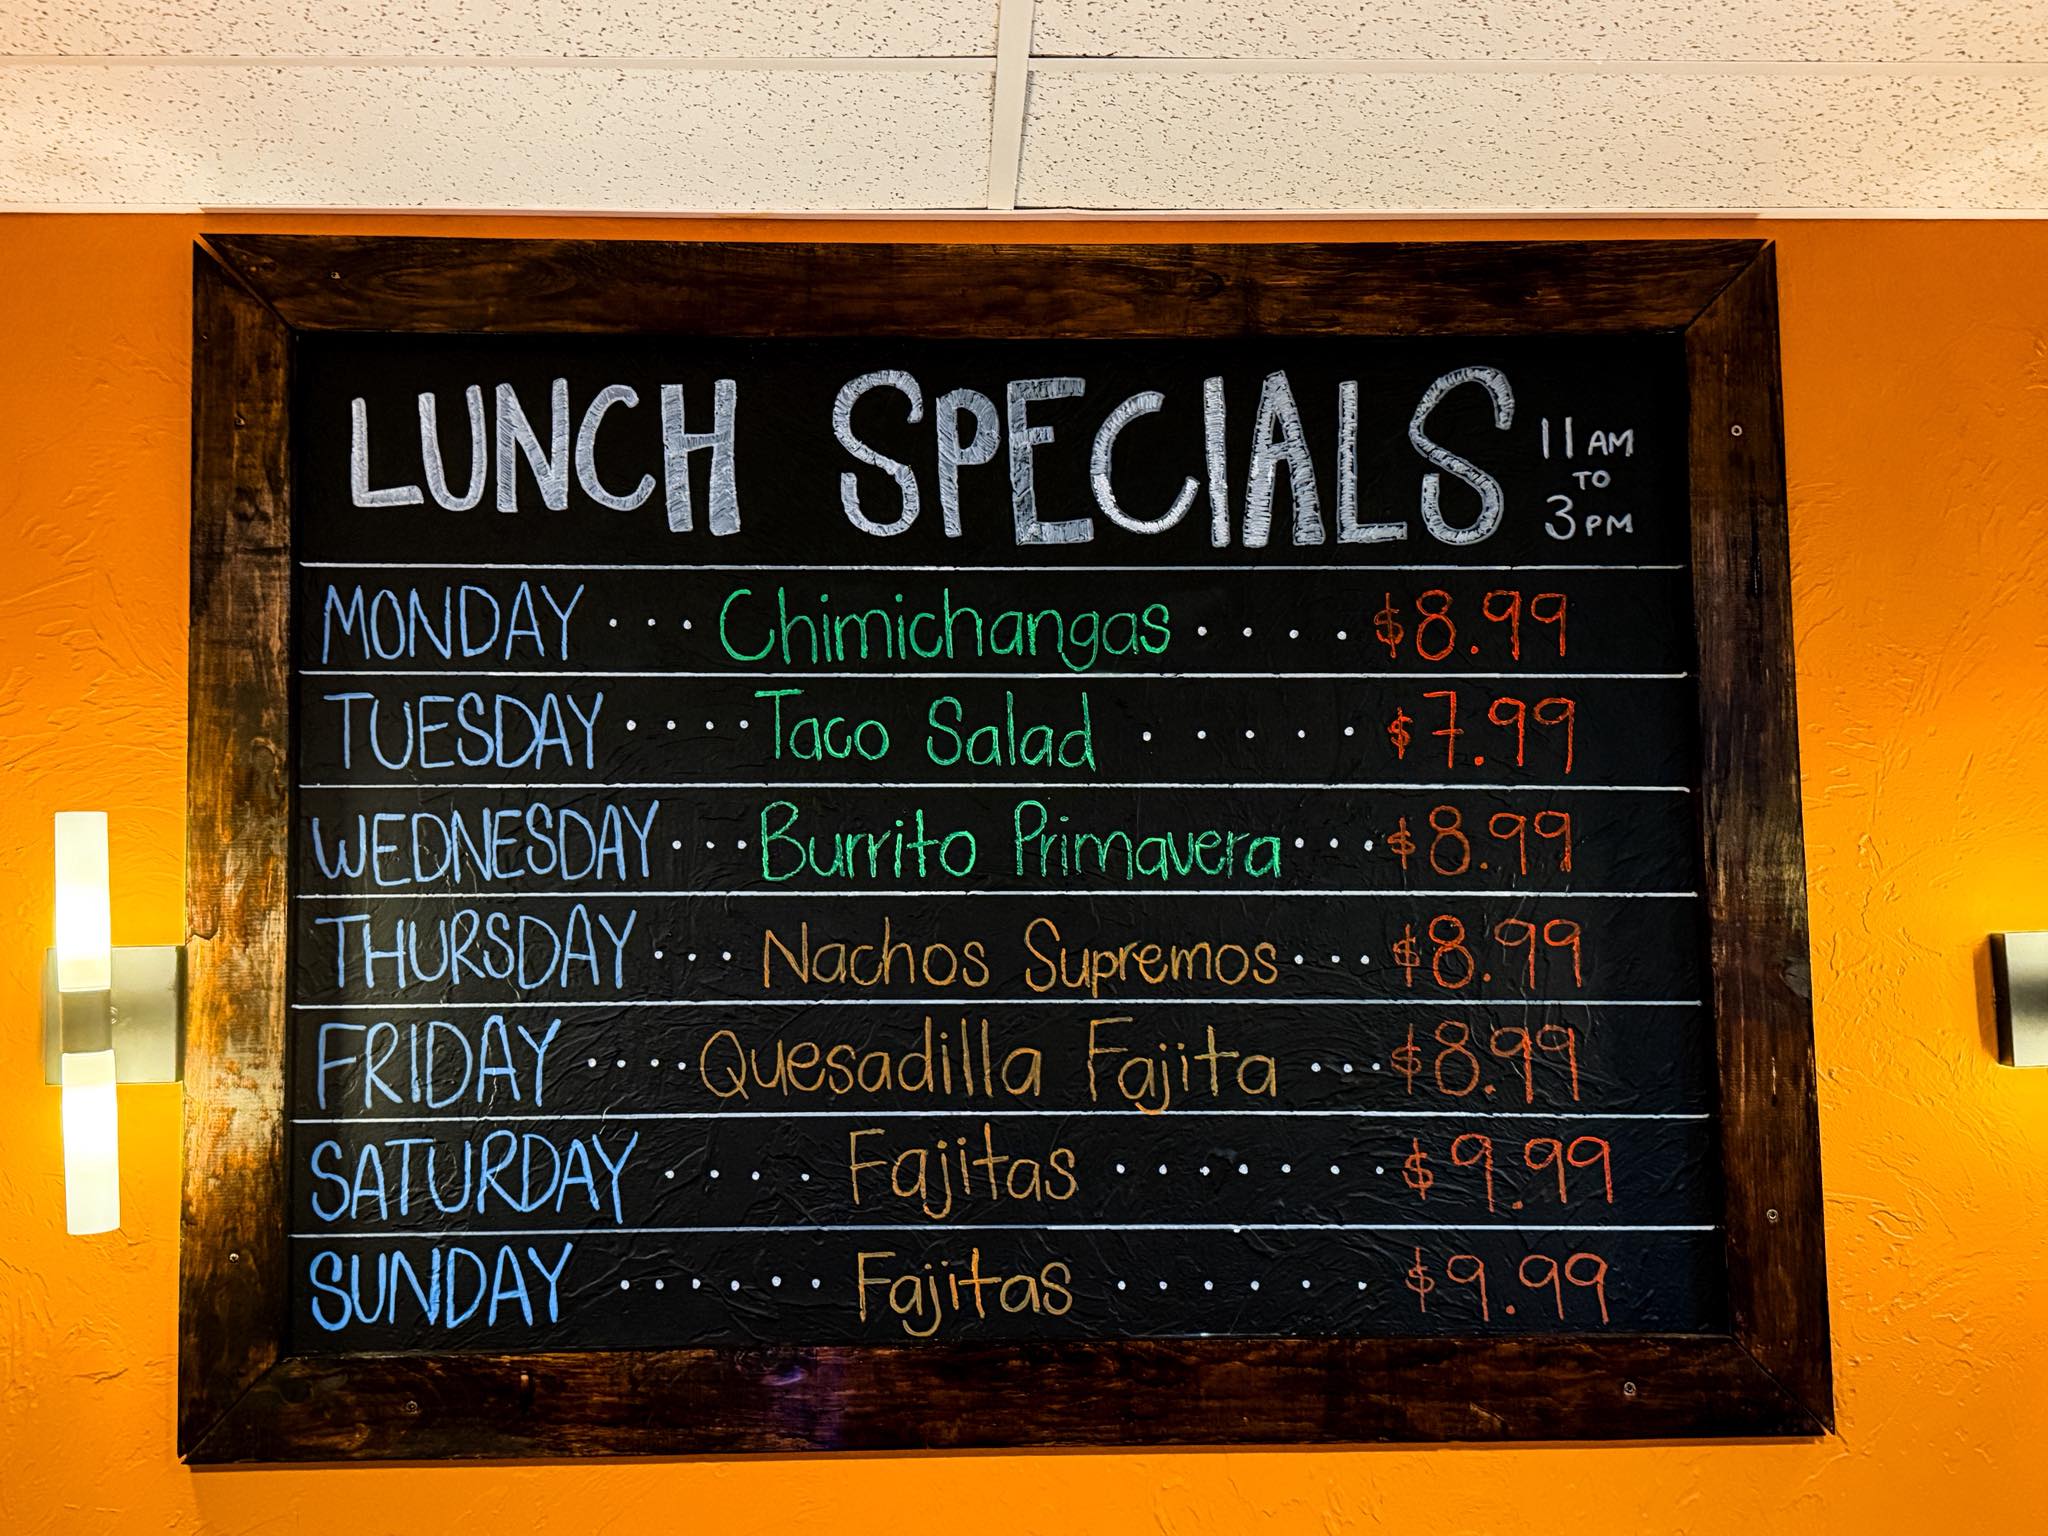 LUNCH SPECIALS 11 AM TO 3 PM
MONDAY . . . Chimichangas . . . . $8.99
TUESDAY . . . . Taco Salad . . . . . $7.99
WEDNESDAY . . . Burrito Primavera . . . $8.99
THURSDAY . . . Nachos Supremos . . . $8.99
FRIDAY . . . . Quesadilla Fajita . . . $8.99
SATURDAY . . . . Fajitas . . . . . . . $9.99
SUNDAY . . . . . . Fajitas . . . . . . $9.99